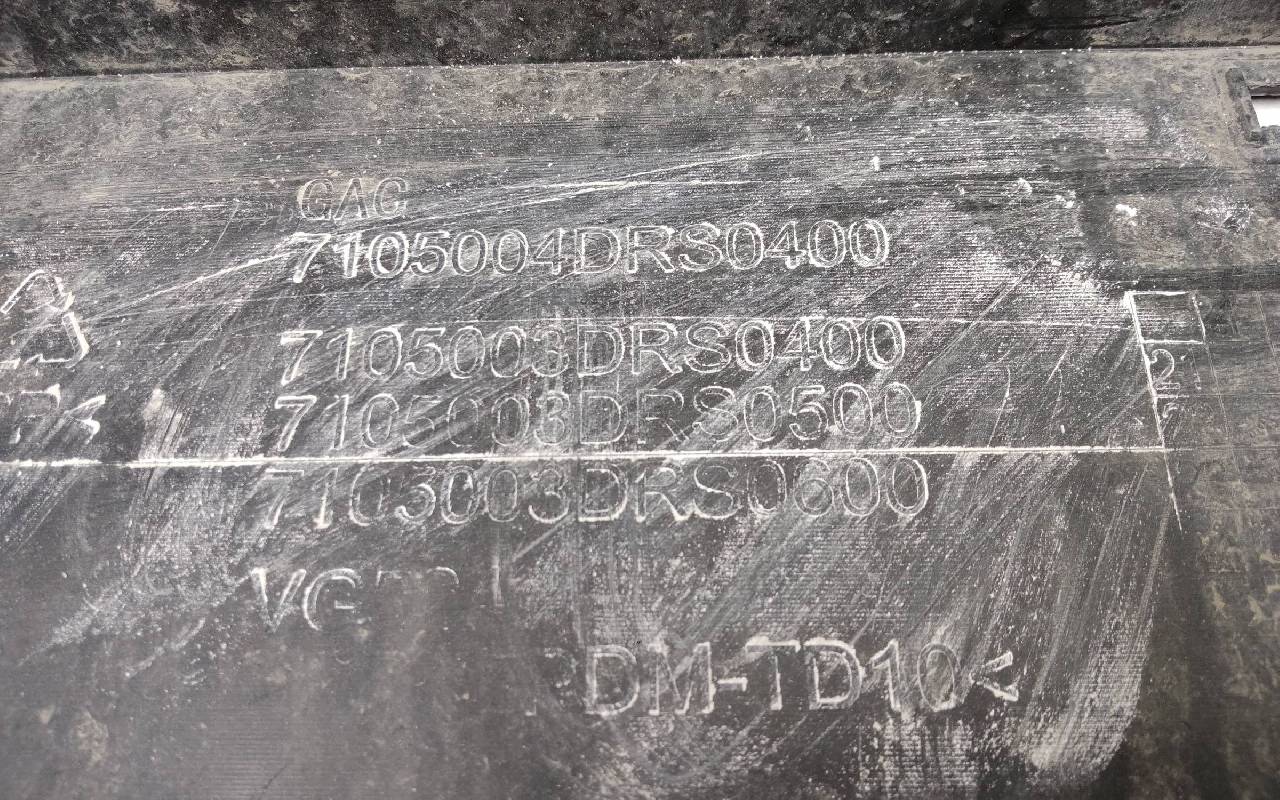 GAC
7105004DRS0400
7105003DRS0400
7105003DRS0500
7105003DRS0600
PDM-TD10<